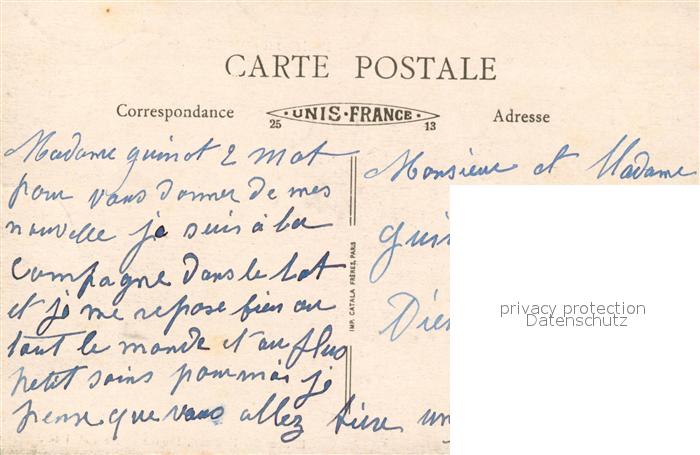 CARTE POSTALE
Correspondance
25 UNIS-FRANCE 13
Adresse
Madame guinot 2 mot
pour vous donner de mes
nouvelle je suis à la
Compagne dans le lot
et je me repose bien ou
tout le monde et au plus
petit soins pour moi je
pense que vous allez bien un
IMP. CATALA FRÈRES, PARIS
Monsieur et Madame
privacy protection
Datenschutz